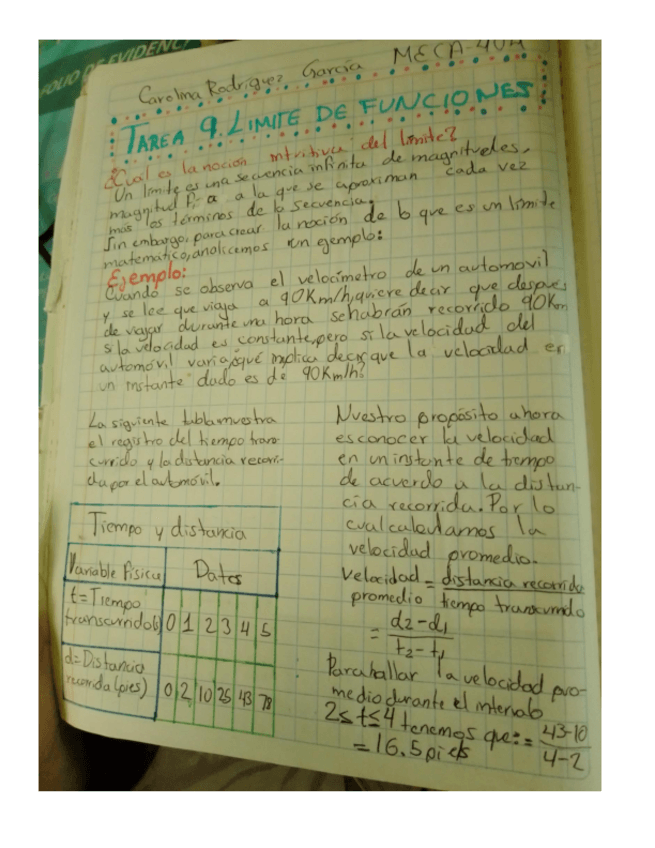 FOLIO DE EVIDENC
Carolina Rodríguez García MECA-401
TAREA 9. LIMITE DE FUNCIONES
¿Cual es la noción intuitiva del límite?
Un límite es una secuencia infinita de magnitudes,
magnitud fija a la que se aproximan cada vez
más los términos de la secuencia.
Sin embargo, para crear la noción de lo que es un límite
matemático, analicemos un ejemplo:
Ejemplo:
Cuando se observa el velocímetro de un automovil
y se lee que viaja a 90Km/h, quiere decir que después
de viajar durante una hora se habrán recorrido 90Km
si la velocidad es constante, pero si la velocidad del
automóvil varia, ¿qué implica decir que la velocidad en
un "instante" dado es de 90Km/h?
La siguiente tabla muestra
el registro del tiempo trans-
currido y la distancia recorri-
da por el automóvil.
Tiempo y distancia
Variable Física Datos
t=Tiempo
transcurrido(s) 0 1 2 3 4 5
d=Distancia
recorrida (pies) 0 2 10 25 43 78
Nuestro propósito ahora
es conocer la velocidad
en un instante de tiempo
de acuerdo a la distan-
cia recorrida. Por lo
cual calculamos la
velocidad promedio.
Velocidad = distancia recorrida
promedio tiempo transcurrido
= d2-d1
t2-t1
Para hallar la velocidad pro-
medio durante el intervalo
2≤t≤4 tenemos que: = 43-10
4-2
= 16.5 pies